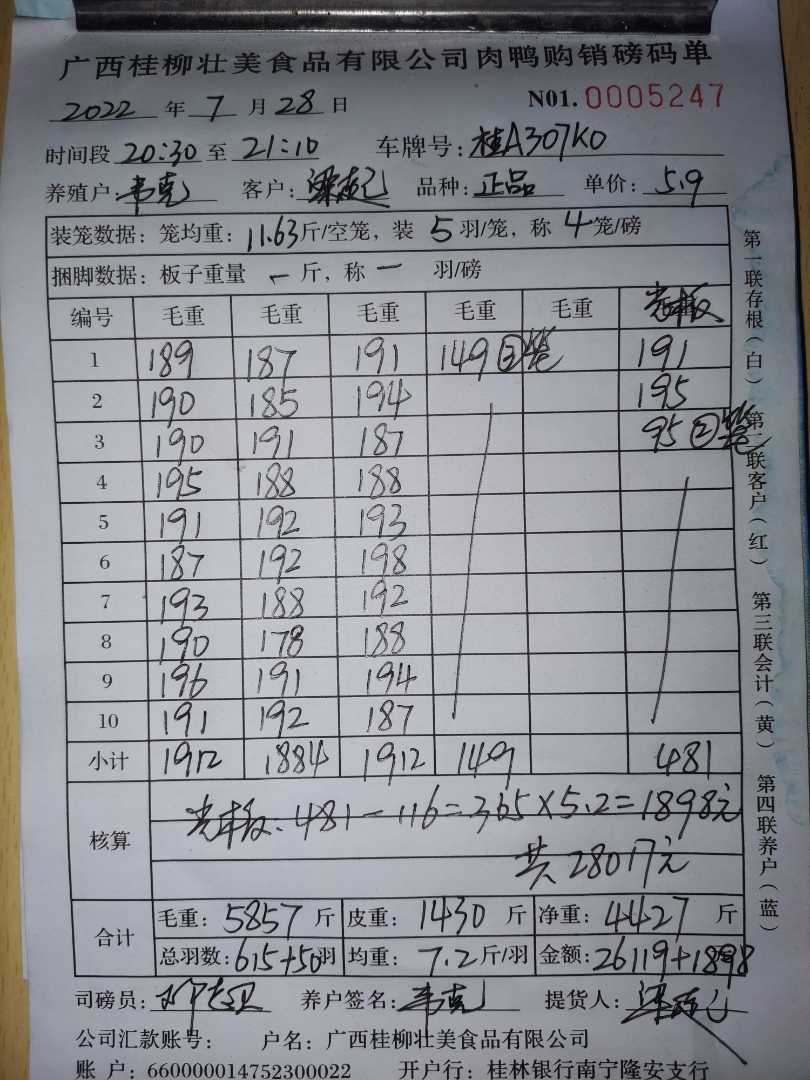 广西桂柳壮美食品有限公司肉鸭购销磅码单
2022 年 7 月 28 日 N01. 0005247
时间段 20:30 至 21:10 车牌号: 桂A307K0
养殖户: 韦克 客户: 品种: 正品 单价: 5.9
装笼数据: 笼均重: 11.63斤/空笼, 装 5 羽/笼, 称 4 笼/磅
捆脚数据: 板子重量 一 斤, 称 一 羽/磅
编号 毛重 毛重 毛重 毛重 毛重 光本板
1 189 187 191 149 ③笼 191
2 190 185 194 195
3 190 191 187 95 ②笼
4 195 188 188
5 191 192 193
6 187 192 198
7 193 188 192
8 190 178 188
9 196 191 194
10 191 192 187
小计 1912 1884 1912 149 481
核算 光本板: 481-116=365×5.2=1898元
共28017元
合计 毛重: 5857 斤 皮重: 1430 斤 净重: 4427 斤
总羽数: 615+50羽 均重: 7.2斤/羽 金额: 26119+1898
司磅员: 养户签名: 韦克 提货人:
公司汇款账号: 户名: 广西桂柳壮美食品有限公司
账 户: 660000014752300022 开户行: 桂林银行南宁隆安支行
第一联存根(白) 第二联客户(红) 第三联会计(黄) 第四联养户(蓝)